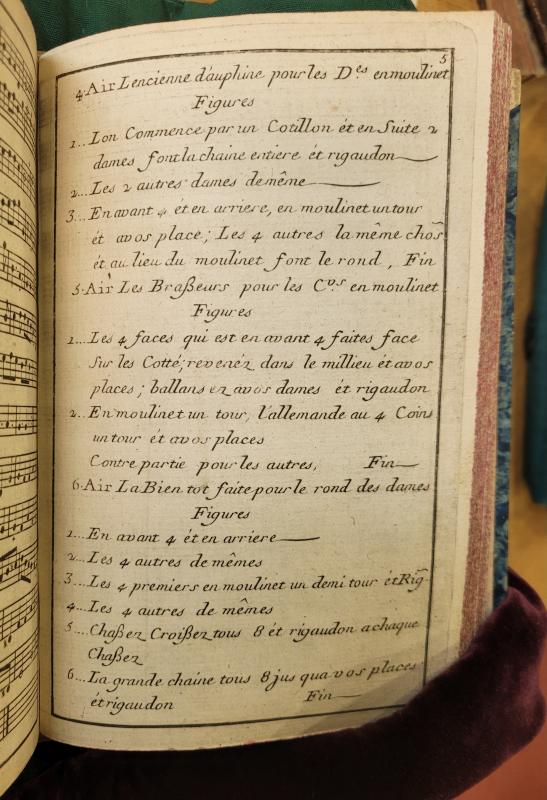 5
4. Air Lencienne dauphine pour les D.es en moulinet
Figures
1... Lon Commence par un Cotillon ét en Suite 2
dames font la chaine entiere ét rigaudon
2... Les 2 autres dames de même
3... En avant 4 ét en arriere, en moulinet un tour
ét avos place; Les 4 autres la même chos̃
ét au lieu du moulinet font le rond, Fin
5. Air Les Braßeurs pour les C.vs en moulinet
Figures
1... Les 4 faces qui est en avant 4 faites face
Sur les Cotté; revenéz dans le millieu ét avos
places; ballans ez avos dames ét rigaudon
2... En moulinet un tour, l'allemande au 4 Coins
un tour ét avos places
Contre partie pour les autres, Fin
6. Air La Bien tot faite pour le rond des dames
Figures
1... En avant 4 ét en arriere
2... Les 4 autres de mêmes
3... Les 4 premiers en moulinet un demi tour ét Rig̃
4... Les 4 autres de mêmes
5... Chaßez Croißez tous 8 ét rigaudon a chaque
Chaßez
6... La grande chaine tous 8 jus qua vos places
ét rigaudon Fin